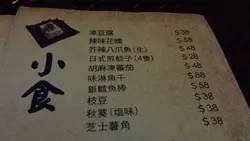 小食
凍豆腐 $38
辣味花螺 $58
芥辣八爪魚(生) $48
日式煎餃子(4隻) $28
胡麻凍蕃茄 $48
味淋魚干 $88
銀鱈魚棒 $58
枝豆 $38
秋葵(塩味) $38
芝士薯角 $38